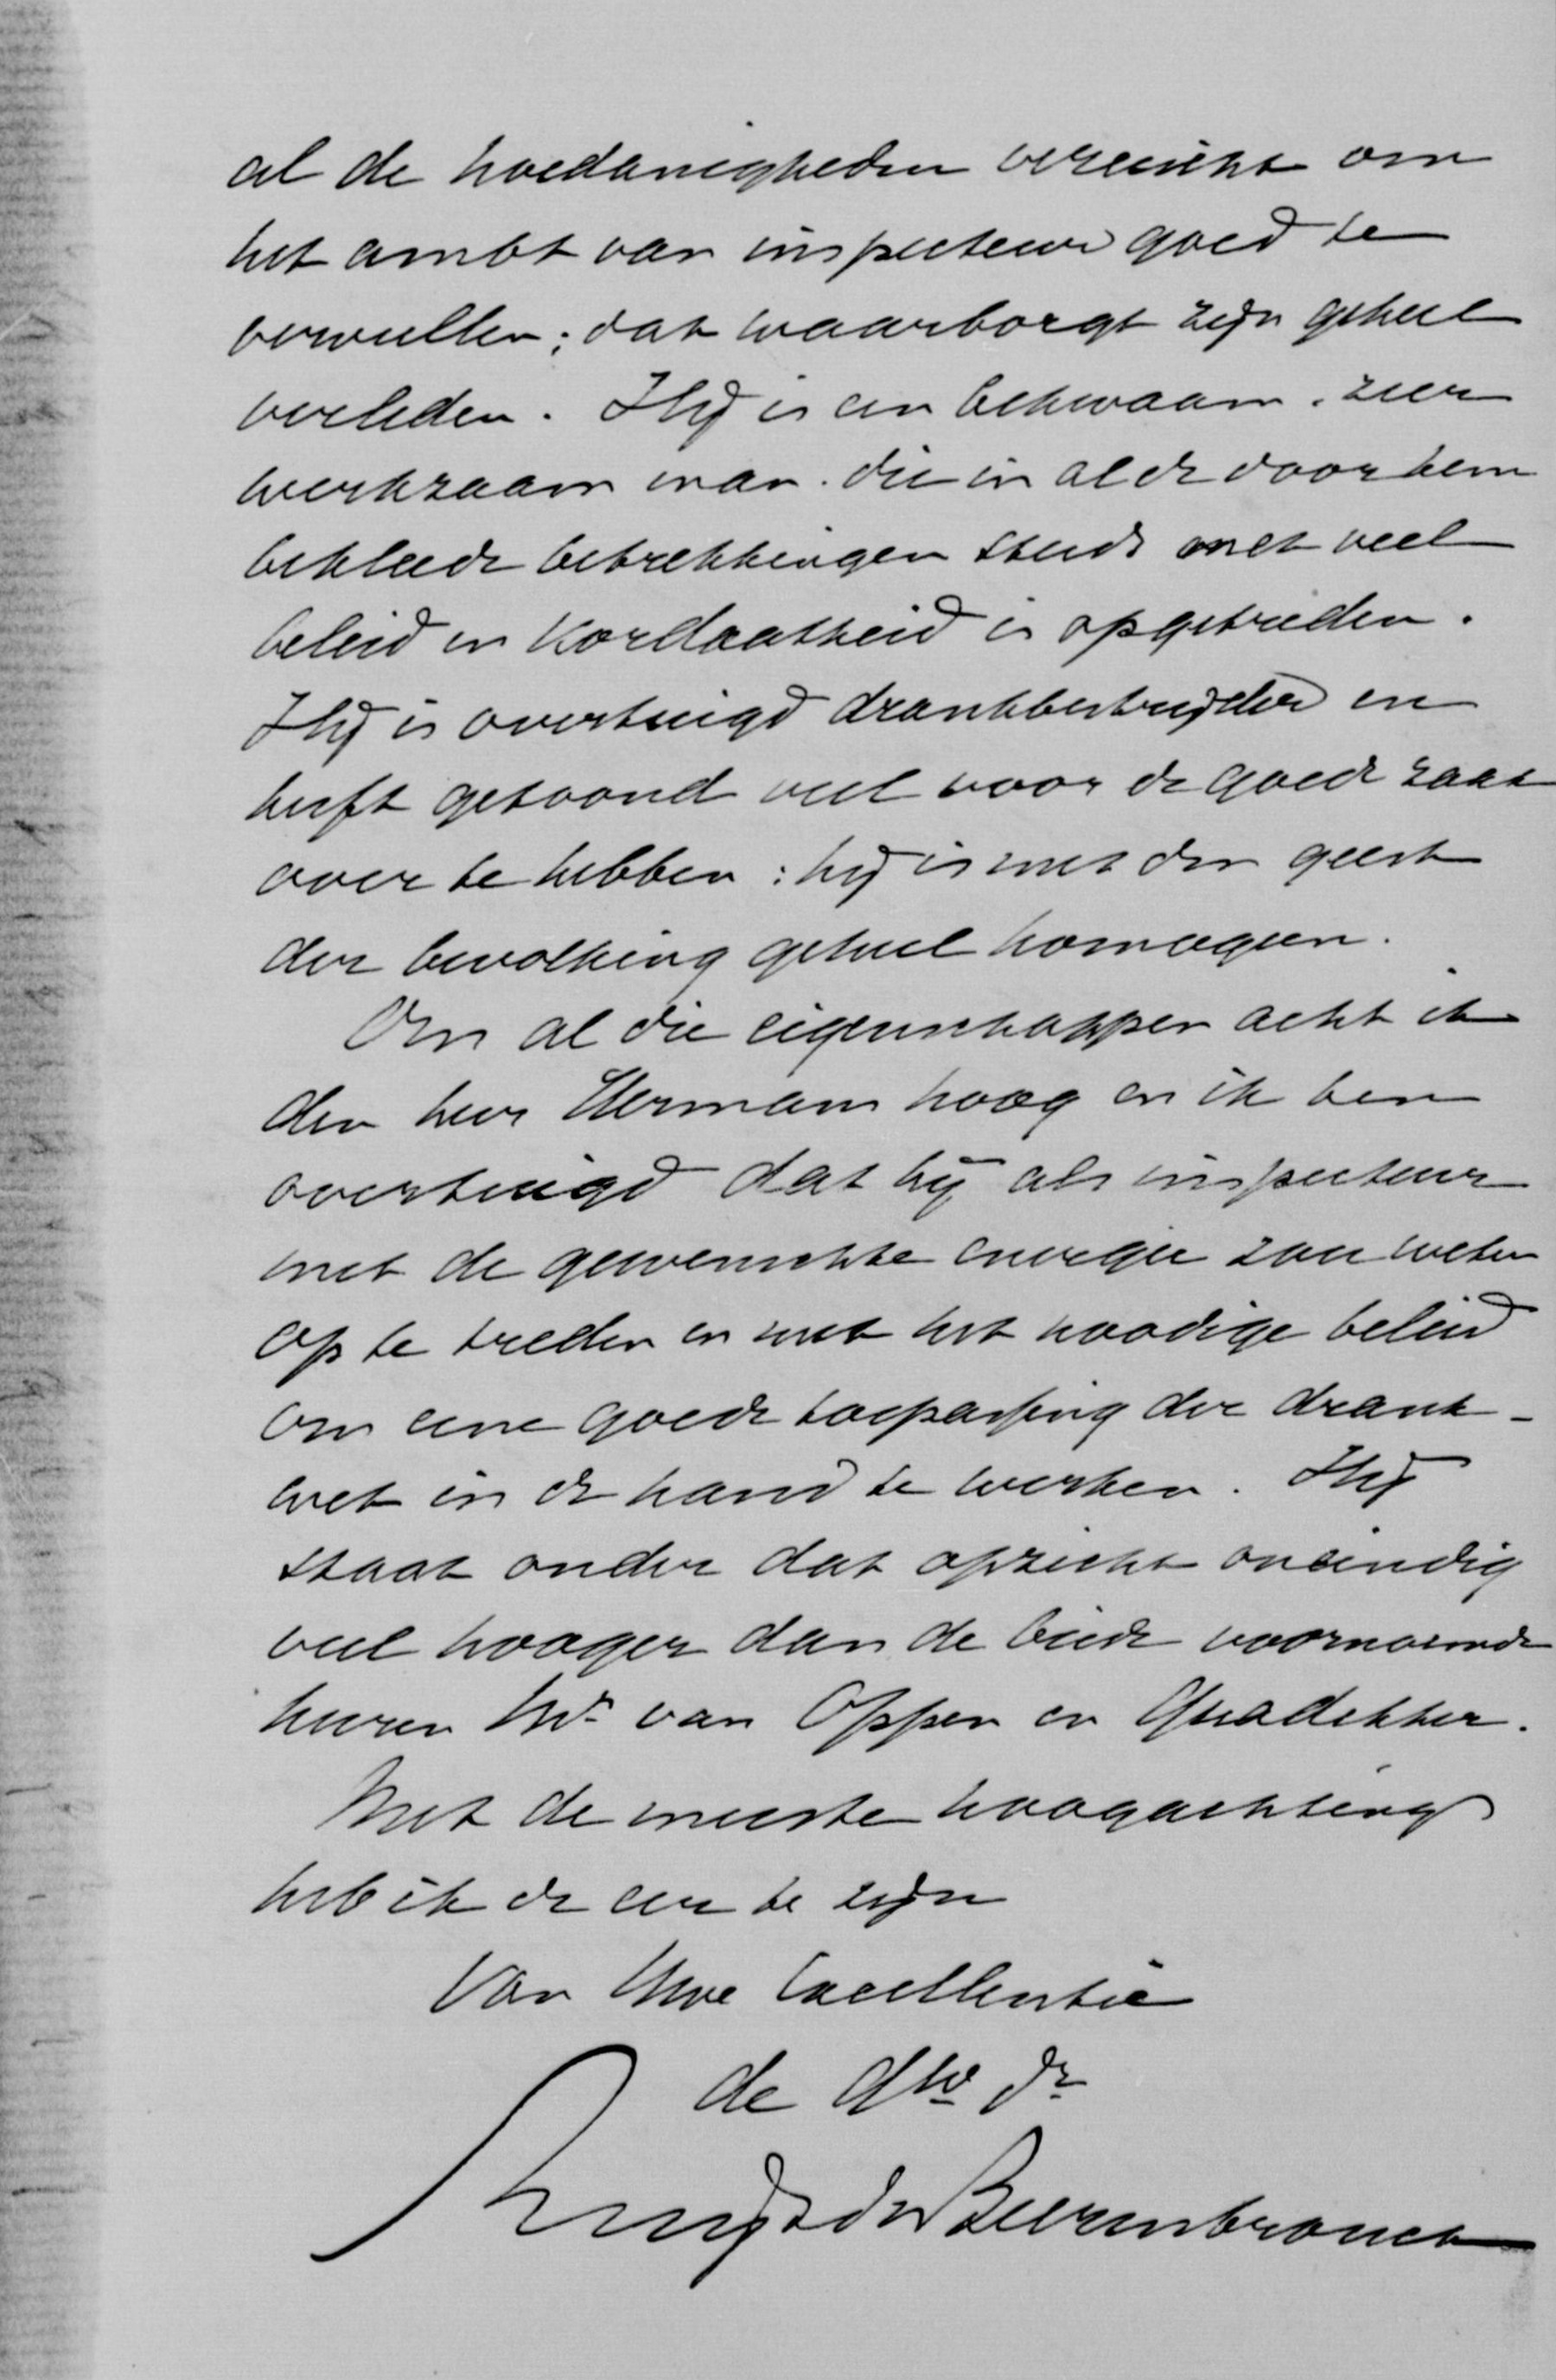 al de hoedanigheden vereischt om
het ambt van inspecteur goed te
vervullen; dat waarborgt zijn geheel
verleden. Hij is een bekwaam, zeer
werkzaam man, die in al de door hem
bekleede betrekkingen steeds met veel
beleid en kordaatheid is opgetreden.
Hij is overtuigd drankbestrijder en
heeft getoond veel voor de goede zaak
over te hebben: hij is met den geest
der bevolking geheel homogeen.
Om al die eigenschappen acht ik
den heer Hermans hoog en ik ben
overtuigd dat hij als inspecteur
met de gewenschte energie zou weten
op te treden en met het noodige beleid
om eene goede toepassing der drank-
wet in de hand te werken. Hij
staat onder dat opzicht oneindig
veel hooger dan de beide voornoemde
heeren Mr van Oppen en Quadekker.
Met de meeste hoogachting
heb ik de eer te zijn
Van Uwe Excellentie
de dw dr
Ruijs de Beerenbrouck